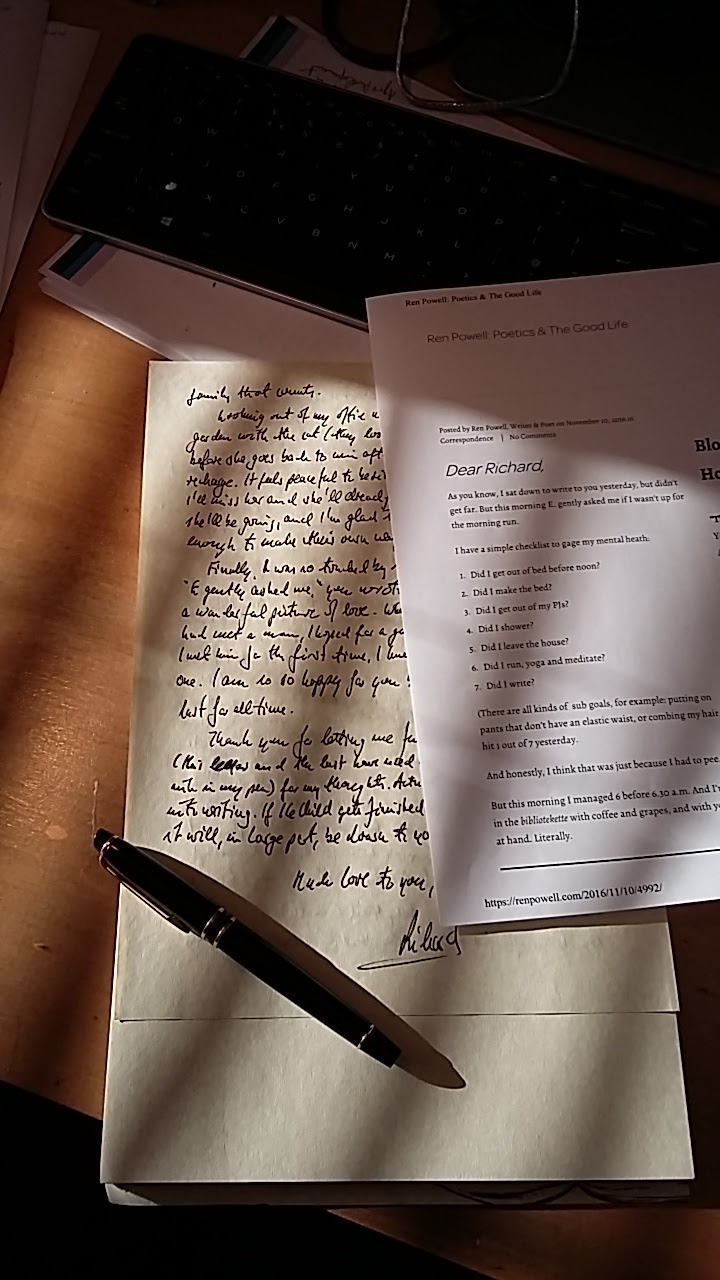 family that wants.
Looking out of my office
garden with the cat (they
before she goes back to
recharge. It feels peaceful to
I'll miss her and she'll already
she'll be going, and I'm glad
enough to make their own
Finally, I was so touched by
"E gently asked me," you wrote
a wonderful picture of love.
had met a man, I hoped for a
I met him for the first time, I
one. I am so so happy for you
last for all time.
Thank you for letting me
(this letter and the last have used
ink in my pen) for my thoughts.
into writing. If the Child gets finished
it will, in large part, be down to
Much love to you,
Richard
Ren Powell: Poetics & The Good Life
Ren Powell: Poetics & The Good Life
Posted by Ren Powell, Writer & Poet on November 10, 2016 in
Correspondence | No Comments
Dear Richard,
As you know, I sat down to write to you yesterday, but didn't
get far. But this morning E. gently asked me if I wasn't up for
the morning run.
I have a simple checklist to gage my mental heath:
1. Did I get out of bed before noon?
2. Did I make the bed?
3. Did I get out of my PJs?
4. Did I shower?
5. Did I leave the house?
6. Did I run, yoga and meditate?
7. Did I write?
(There are all kinds of sub goals, for example: putting on
pants that don't have an elastic waist, or combing my hair
hit 1 out of 7 yesterday.
And honestly, I think that was just because I had to pee.
But this morning I managed 6 before 6.30 a.m. And I'
in the bibliotekette with coffee and grapes, and with
at hand. Literally.
https://renpowell.com/2016/11/10/4992/
Blo
Ho